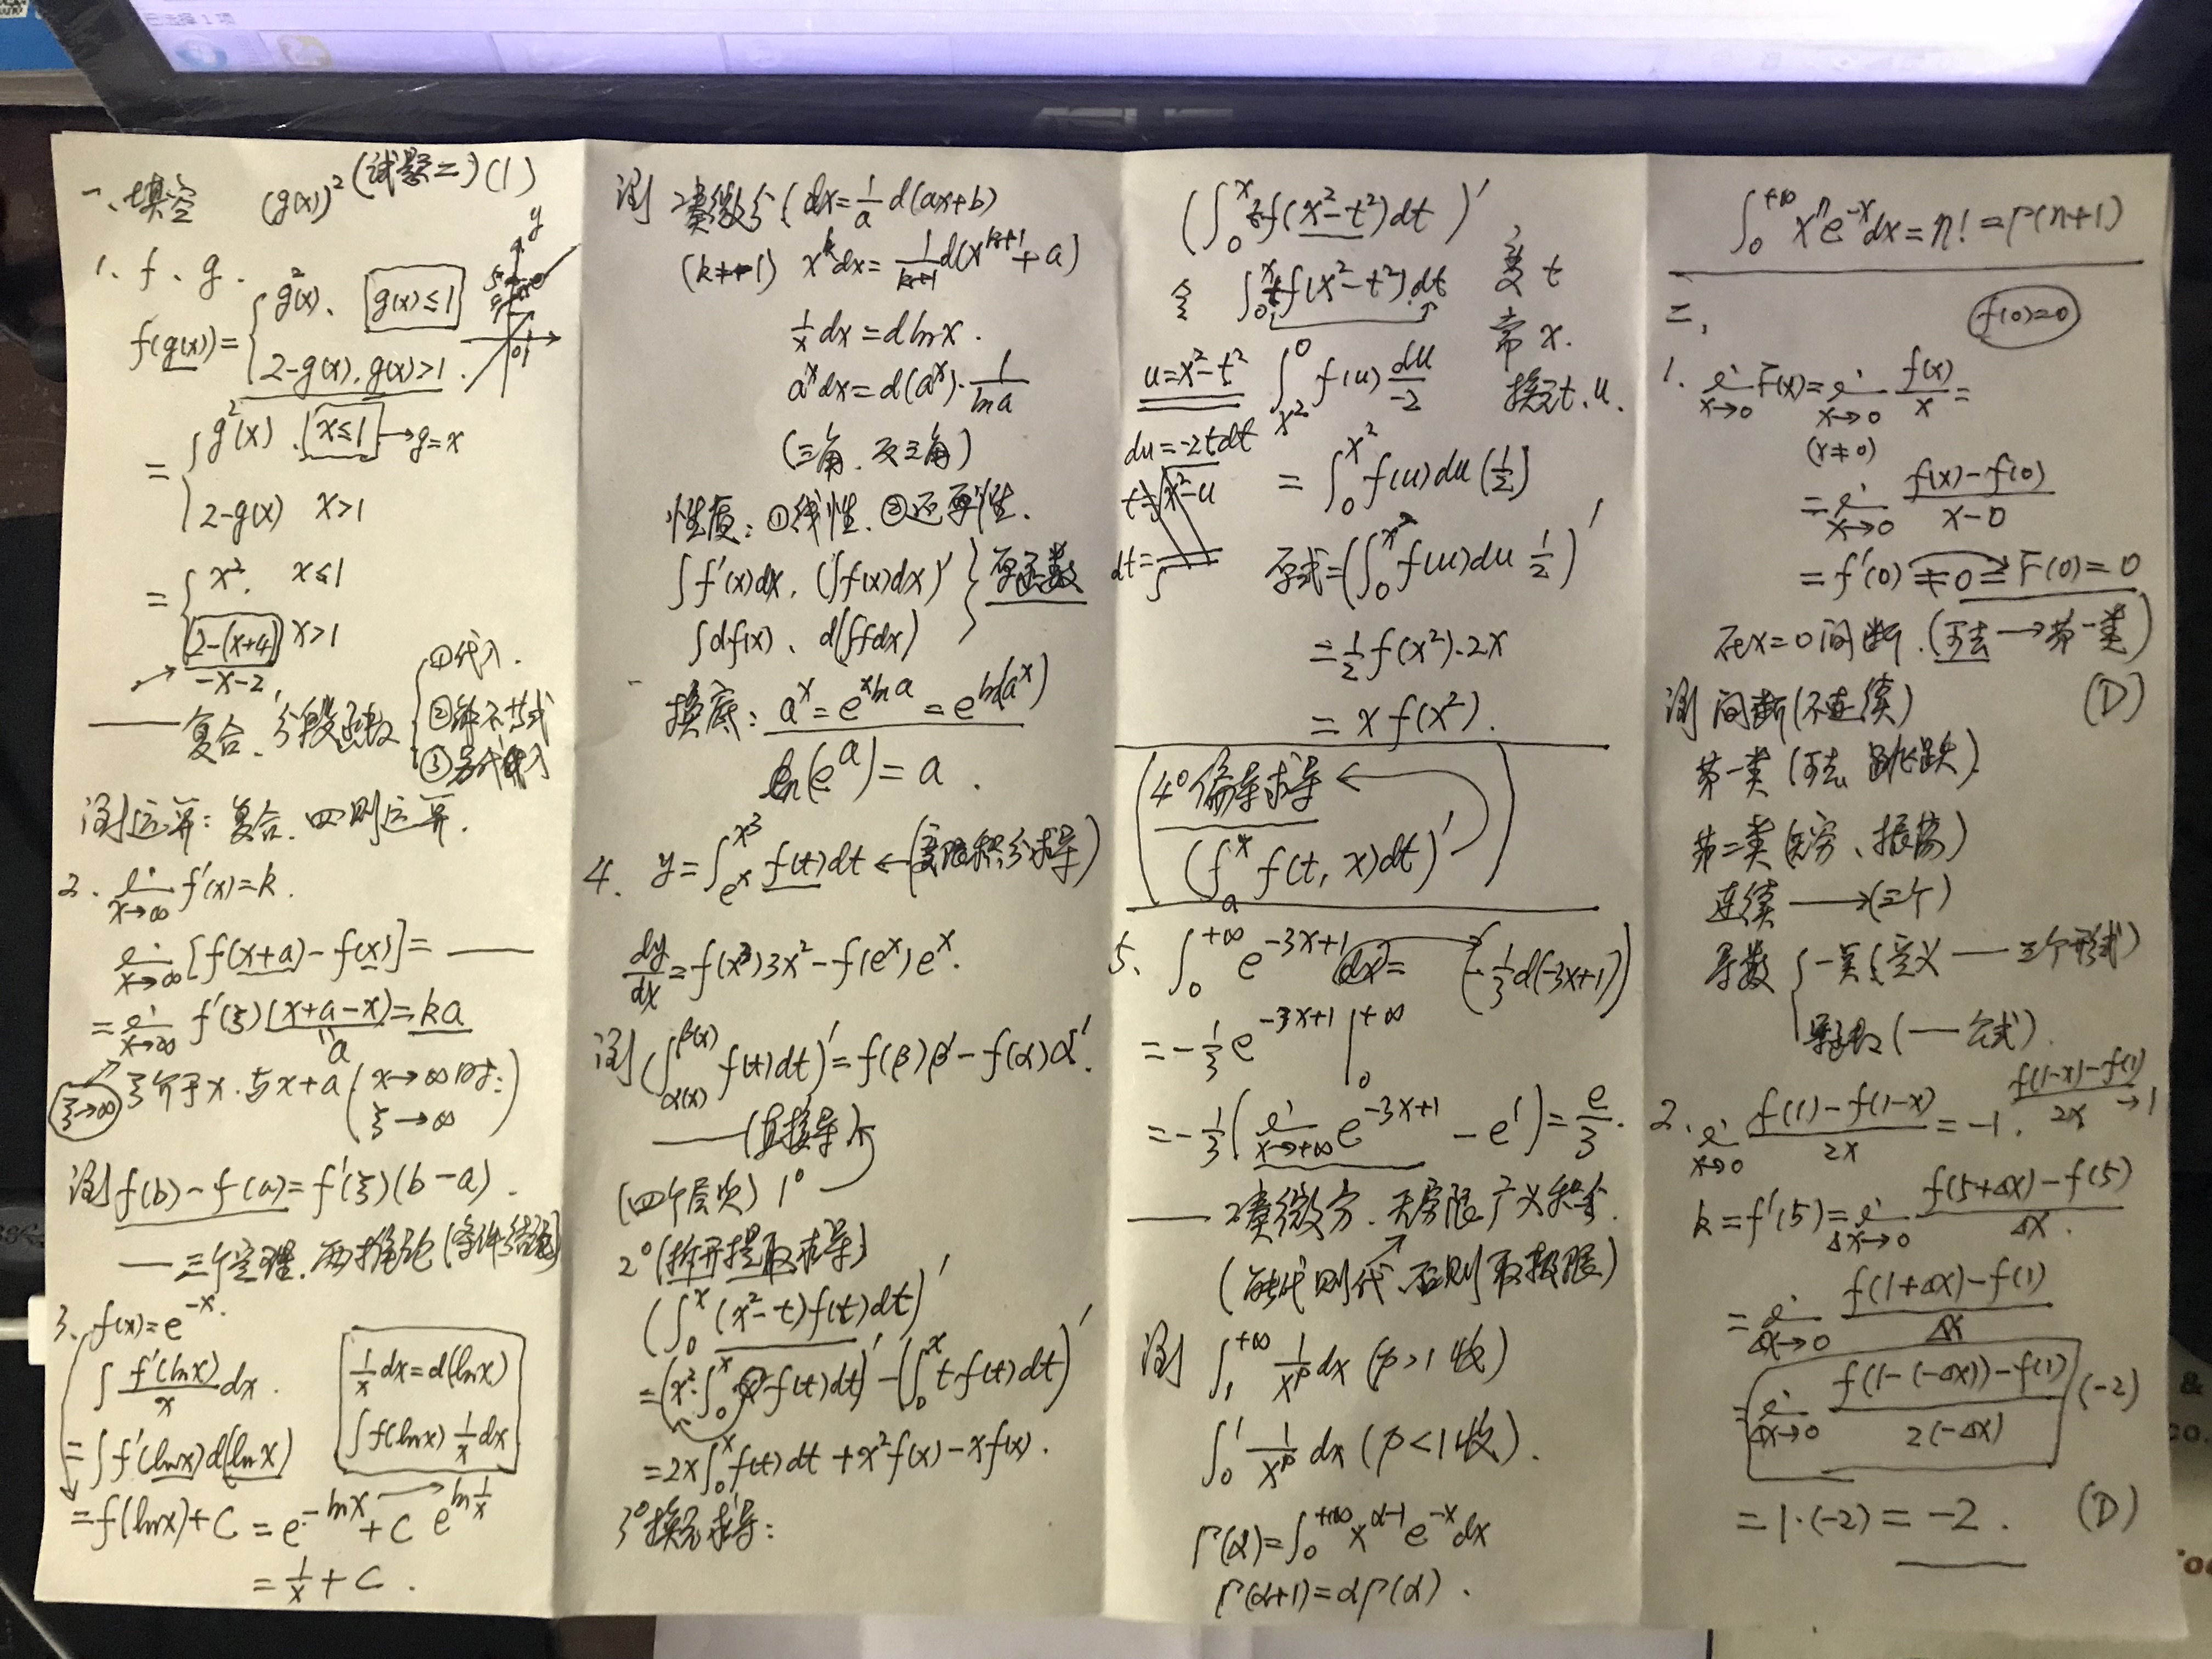 一、填空 (g(x))² (试题二)(1)
1、f、g.
f(g(x))={g²(x)、g(x)≤1
2-g(x), g(x)>1.
={g²(x)、x≤1→g=x
2-g(x) x>1
={x², x≤1
2-(x+4) x>1
-x-2,
——复合、分段函数{①代入.
②解不等式
③另代入
测运算:复合、四则运算.
2. lim x→∞ f'(x)=k.
lim x→∞ [f(x+a)-f(x)]=——
=lim x→∞ f'(ξ)(x+a-x)=ka
a
ξ→∞ ξ介于x与x+a(x→∞时:
ξ→∞)
测f(b)-f(a)=f'(ξ)(b-a).
——三个定理、两推论(条件结论)
3、f(x)=e^{-x}.
∫f'(lnx)/x dx.
1/x dx=d(lnx)
∫f(lnx) 1/x dx
=∫f'(lnx)d(lnx)
=f(lnx)+C=e^{-lnx}+C e^{ln 1/x}
=1/x+C.
测 凑微分(dx=1/a d(ax+b)
(k≠-1) x^k dx=1/(k+1) d(x^{k+1}+a)
1/x dx=dlnx.
a^x dx=d(a^x)·1/lna
(三角、反三角)
性质:①线性、②还原性.
∫f'(x)dx,(∫f(x)dx)'}原函数
∫df(x)、d(∫fdx)
换底:a^x=e^{xlna}=e^{ln(a^x)}
ln(e^a)=a.
4. y=∫_{e^x}^{x³} f(t)dt←(变限积分求导)
dy/dx=f(x³)3x²-f(e^x)e^x.
测(∫_{α(x)}^{β(x)} f(t)dt)'=f(β)β'-f(α)α'.
——(直接导)
(四个层次)1°
2°(拆开提取求导)
(∫_0^x (x²-t)f(t)dt)'
=(x²·∫_0^x f(t)dt)'-(∫_0^x t·f(t)dt)'
=2x∫_0^x f(t)dt+x²f(x)-xf(x).
3°换元求导:
(∫_0^x tf(x²-t²)dt)'
令 ∫_0^x tf(x²-t²)dt 变t
常x.
u=x²-t² ∫_{x²}^0 f(u) du/-2 换元t、u.
du=-2tdt
=∫_0^{x²} f(u)du(1/2)
原式=(∫_0^{x²} f(u)du 1/2)'
=1/2 f(x²)·2x
=xf(x²).
(4°偏导求导
(∫_a^x f(t,x)dt)')
5. ∫_0^{+∞} e^{-3x+1}dx= (-1/3 d(-3x+1))
=-1/3 e^{-3x+1}|_0^{+∞}
=-1/3(lim x→+∞ e^{-3x+1}-e^1)=e/3.
——凑微分、无穷限广义积分.
(能代则代、否则取极限)
测 ∫_1^{+∞} 1/x^p dx (p>1收)
∫_0^1 1/x^p dx (p<1收).
Γ(α)=∫_0^{+∞} x^{α-1}e^{-x}dx
Γ(α+1)=αΓ(α).
∫_0^{+∞} x^n e^{-x}dx=n!=Γ(n+1)
二、 f(0)=0
1. lim x→0 F(x)=lim x→0 f(x)/x=
(x≠0)
=lim x→0 (f(x)-f(0))/(x-0)
=f'(0)≠0=F(0)=0
在x=0间断.(可去→第一类)
(D)
测 间断(不连续)
第一类(可去、跳跃)
第二类(无穷、振荡)
连续——(三个)
导数{一点(定义——三个形式)
导函数(——公式).
2. lim x→0 (f(1)-f(1-x))/2x=-1. (f(1-x)-f(1))/2x→1
k=f'(5)=lim Δx→0 (f(5+Δx)-f(5))/Δx.
=lim Δx→0 (f(1+Δx)-f(1))/Δx
=lim Δx→0 (f(1-(-Δx))-f(1))/2(-Δx) (-2)
=1·(-2)=-2. (D)